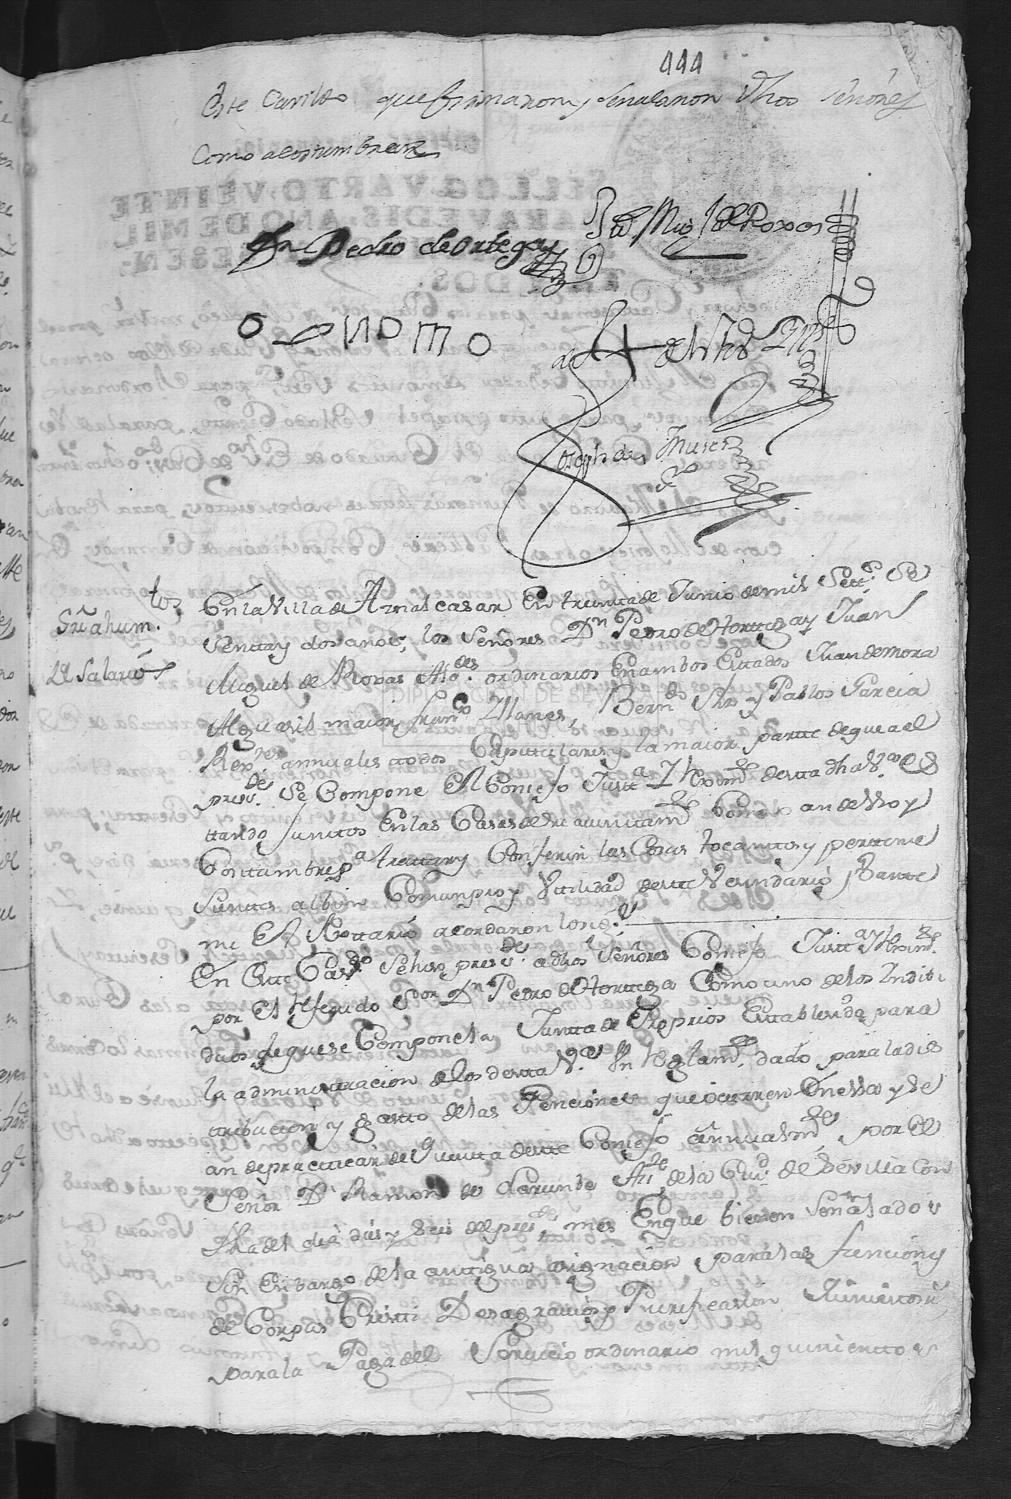 444
Este Cavildo que firmaron y señalaron dhos señores
Como acostumbran
Dn Pedro de Ortega
Miğ de Roxas
Joseph de
En la Villa de Aznalcasar En treinta de Junio de mil Settᵗ Se
Sentta y dos años; los Señores Dⁿ Pedro de Horttega y Juan
Miguel de Roxas Alᵈᵉˢ ordinarios En ambos Esttados Juan de mora
Alguasil maior, Franᶜᵒ Yllanes, Bernᵈᵒ y Pablos Garcia
Rexᵈᵒʳᵉˢ annuales ttodos Capitulares y la maior partte de que a el
presᵗᵉ Se Compone El Consejo Justtᵃ y Reximᵗᵒ destta dha Vᵃ es
ttando Junttos En las Casas de su aiunttamᵗᵒ Como lo an de Uso y
Costtumbre pᵃ trattar y Conferir las Cosas tocanttes y perttene
Sientes al bien Comun pro y Utilidad destte Vesindario Por antte
mi El Nottario acordaron lo sigᵗᵉ
En Estte Cavᵈᵒ Se hiso presᵗᵉ a dhos Señores Consejo Justtᵃ y Reximᵗᵒ
por El referido Sᵒʳ Dⁿ Pedro de Horttega Como uno de los Indibi
duos de que se Compone la Juntta de Propios Esttablesida para
la administracion de los destta Vᵃ Un Reglamᵗᵒ dado para la dis
tribucion y gastto de las Penciones que ocurren En ella y Se
an de practticar de quentta destte Consejo annualmᵗᵉ por El
Señor Dⁿ Ramon de Larumbe Asᵗᵉ de la Ciuᵈ de Sevilla Con
fha del dia dies y seis del presᵗᵉ mes En que bienen Señalados
Sin Embargo de la anttigua asignacion para las funciones
de Corpus Christi Desagravios y Purificasion
para la Paga del Servicio ordinario mil quinienttos
Sⁿᵃ hum.
de Salarios